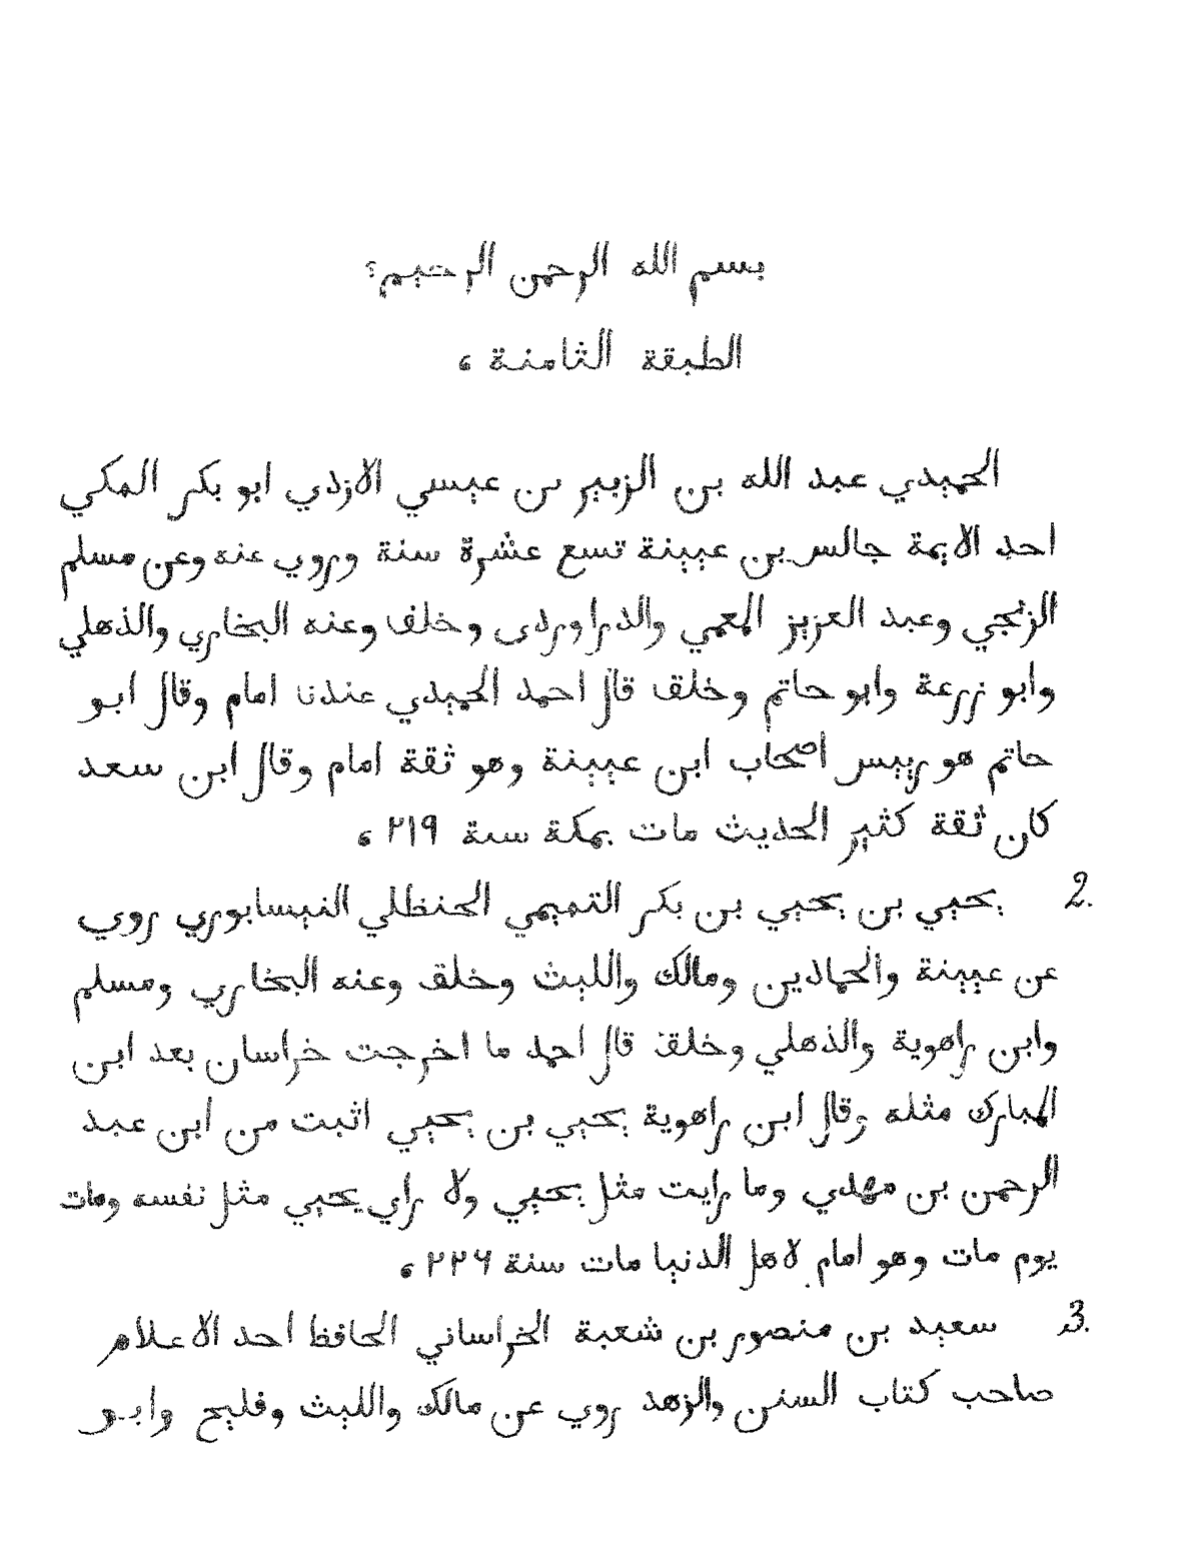 بسم الله الرحمن الرحيم؟
الطبقة الثامنة ،
الحميدي عبد الله بن الزبير بن عيسي الازدي ابو بكر المكي
احد الايمة جالس بن عيينة تسع عشرة سنة وروي عنه وعن مسلم
الزنجي وعبد العزيز المعمي والدراوردى وخلف وعنه البخاري والذهلي
وابو زرعة وابو حاتم وخلق قال احمد الحميدي عندنا امام وقال ابو
حاتم هو رييس اصحاب ابن عيينة وهو ثقة امام وقال ابن سعد
كان ثقة كثير الحديث مات بمكة سنة ٢١٩ ،
2. يحيي بن يحيي بن بكر التميمي الحنظلي النيسابوري روي
عن عيينة والحمادين ومالك والليث وخلق وعنه البخاري ومسلم
وابن راهوية والذهلي وخلق قال احمد ما اخرجت خراسان بعد ابن
المبارك مثله وقال ابن راهوية يحيي بن يحيي اثبت من ابن عبد
الرحمن بن مهدي وما رايت مثل يحيي ولا راي يحيي مثل نفسه ومات
يوم مات وهو امام لاهل الدنيا مات سنة ٢٢٦ ،
3. سعيد بن منصور بن شعبة الخراساني الحافظ احد الاعلام
صاحب كتاب السنن والزهد روي عن مالك والليث وفليح وابو